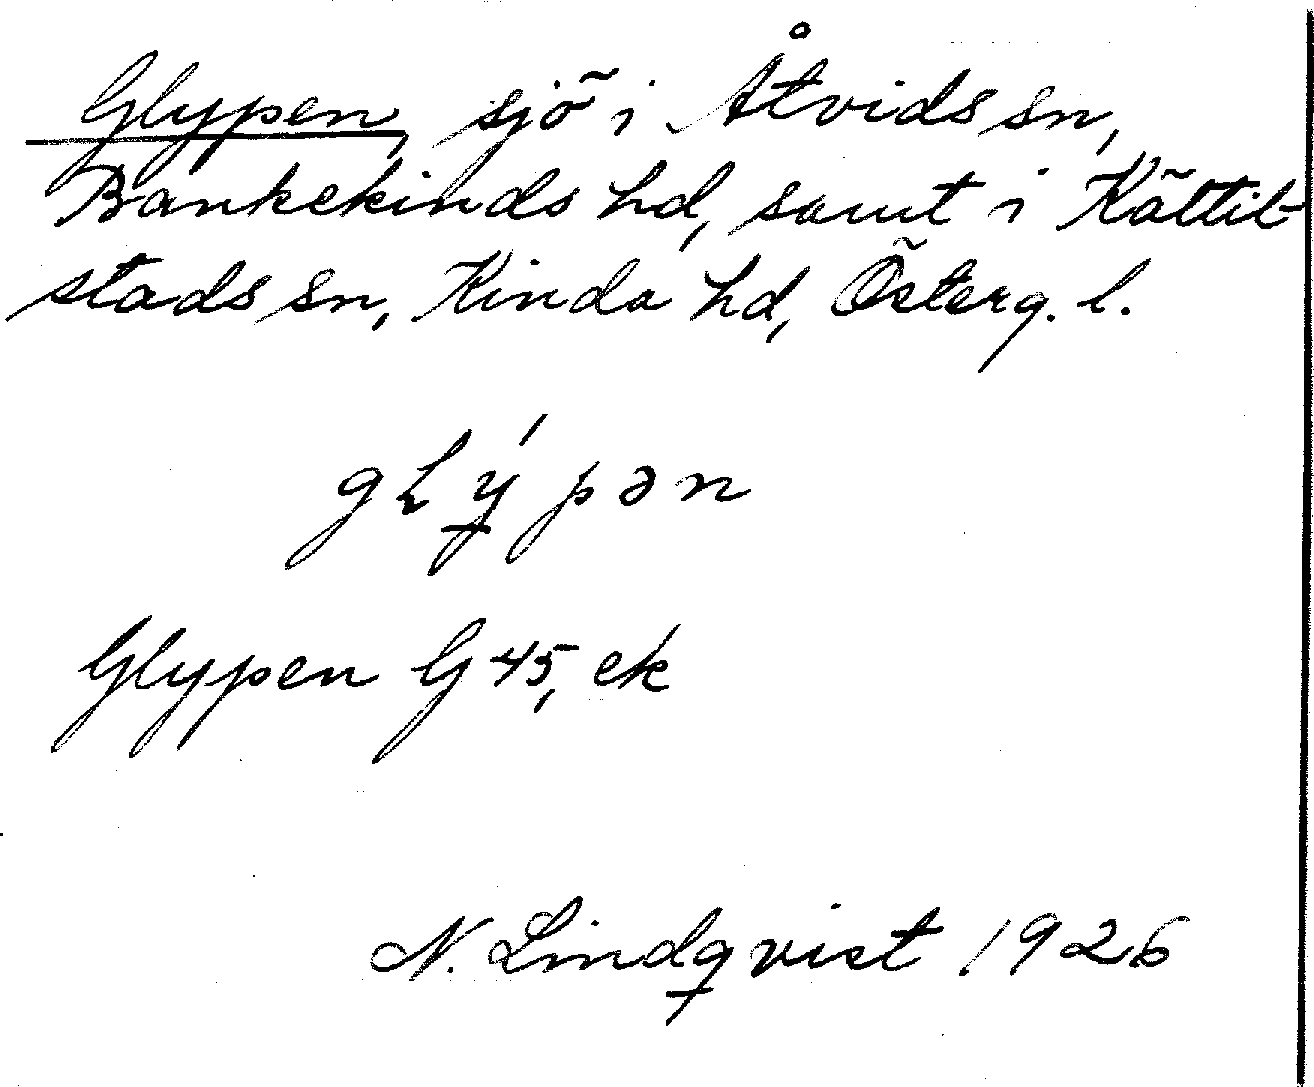 Glypen, sjö i Åtvids sn,
Bankekinds hd, samt i Kättil-
stads sn, Kinda hd, Österg. l.
gLý̠pən
Glypen G 45, ek
N. Lindqvist 1926